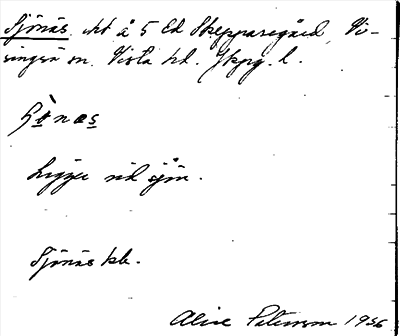 Sjönäs, ht å 5 Ed Skepparegård, Vi-
singsö sn. Vista hd. Jkpg. l.
Ligger vid sjön.
Sjönäs hk.
Alice Peterson 1936